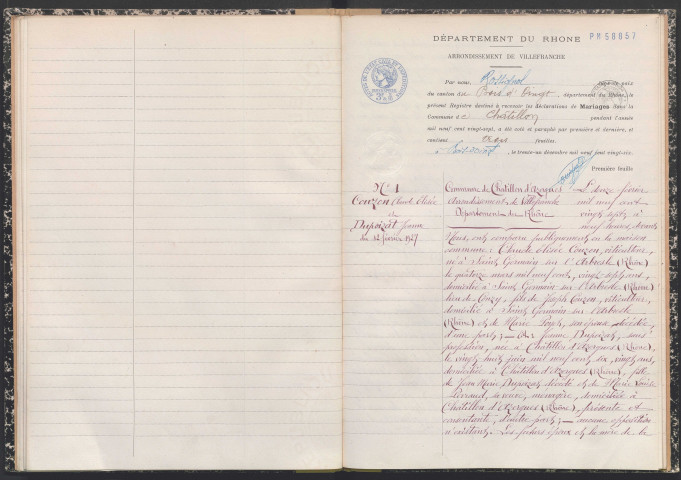 DÉPARTEMENT DU RHONE
PM58057
ARRONDISSEMENT DE VILLEFRANCHE
Par nous, Rossignol juge de paix
du canton du Bois d'Oingt, département du Rhône, le
présent Registre destiné à recevoir les déclarations de Mariages dans la
Commune de Châtillon pendant l'année
mil neuf cent vingt-sept, a été coté et paraphé par première et dernière, et
contient trois feuilles.
à Bois d'Oingt, le trente-un décembre mil neuf cent vingt-six.
Première feuille
N° 1
Couzon Claude Elisée
et
Dupoizat Jeanne
du 12 février 1927
Commune de Chatillon d'Azergues
Arrondissement de Villefranche
Département du Rhône
L'douze février
mil neuf cent
vingt sept à
neuf heures, devant
Nous, ont comparu publiquement en la maison
commune: Claude Elisée Couzon, viticulteur,
né à Saint Germain sur l'Arbresle (Rhône)
le quatorze mars mil neuf cent, vingt sept ans,
domicilié à Saint Germain sur l'Arbresle (Rhône)
fils de Joseph Couzon, viticulteur,
domicilié à Saint Germain sur l'Arbresle
(Rhône) et de Marie son épouse décédée,
d'une part; - Et: Jeanne Dupoizat, sans
profession, née à Châtillon d'Azergues (Rhône),
le vingt huit juin mil neuf cent six, vingt ans,
domiciliée à Châtillon d'Azergues (Rhône), fille
de Jean Marie Dupoizat décédé et de Marie Louise
sa veuve, ménagère, domiciliée à
Châtillon d'Azergues (Rhône), présente et
consentante, d'autre part; - aucune opposition
n'existant. Les futurs époux et la mère de la